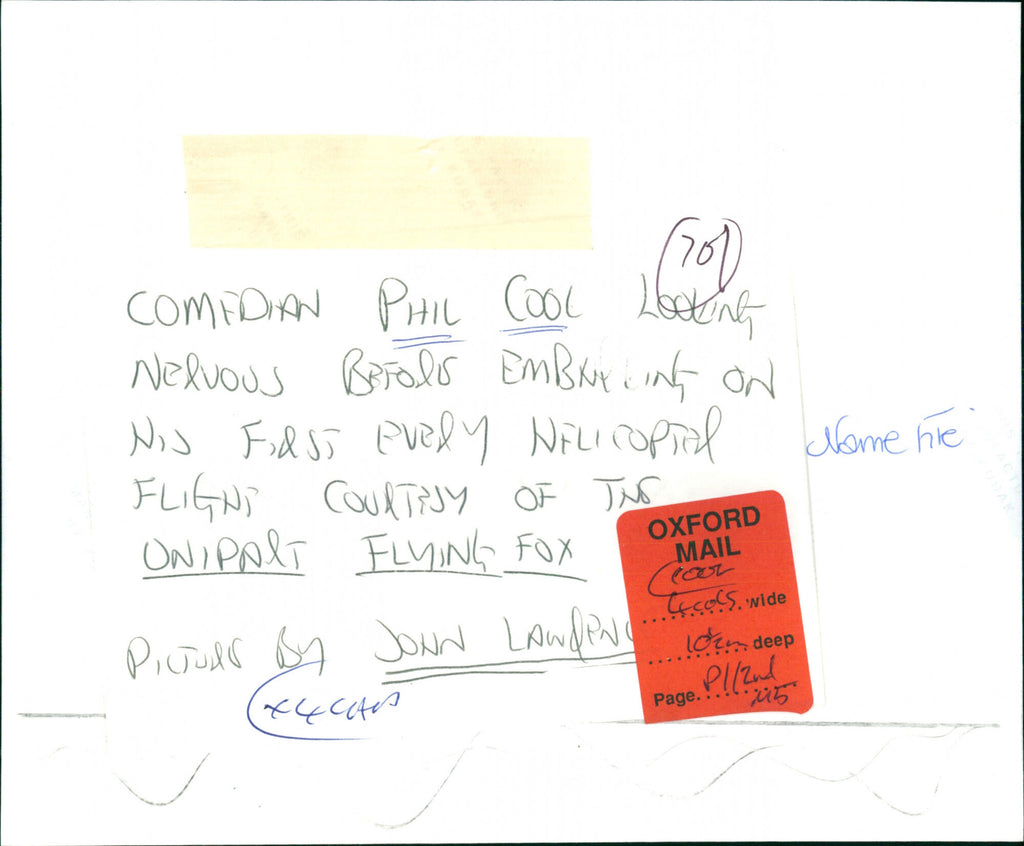 701
COMEDIAN PHIL COOL LOOKING
NERVOUS BEFORE EMBARKING ON
HIS FIRST EVERY HELICOPTER
FLIGHT COURTESY OF THE
UNIPART FLYING FOX
Name File
PICTURE BY JOHN LAWRENC
OXFORD
MAIL
COOL
wide
10 cm deep
Page P11/2nd